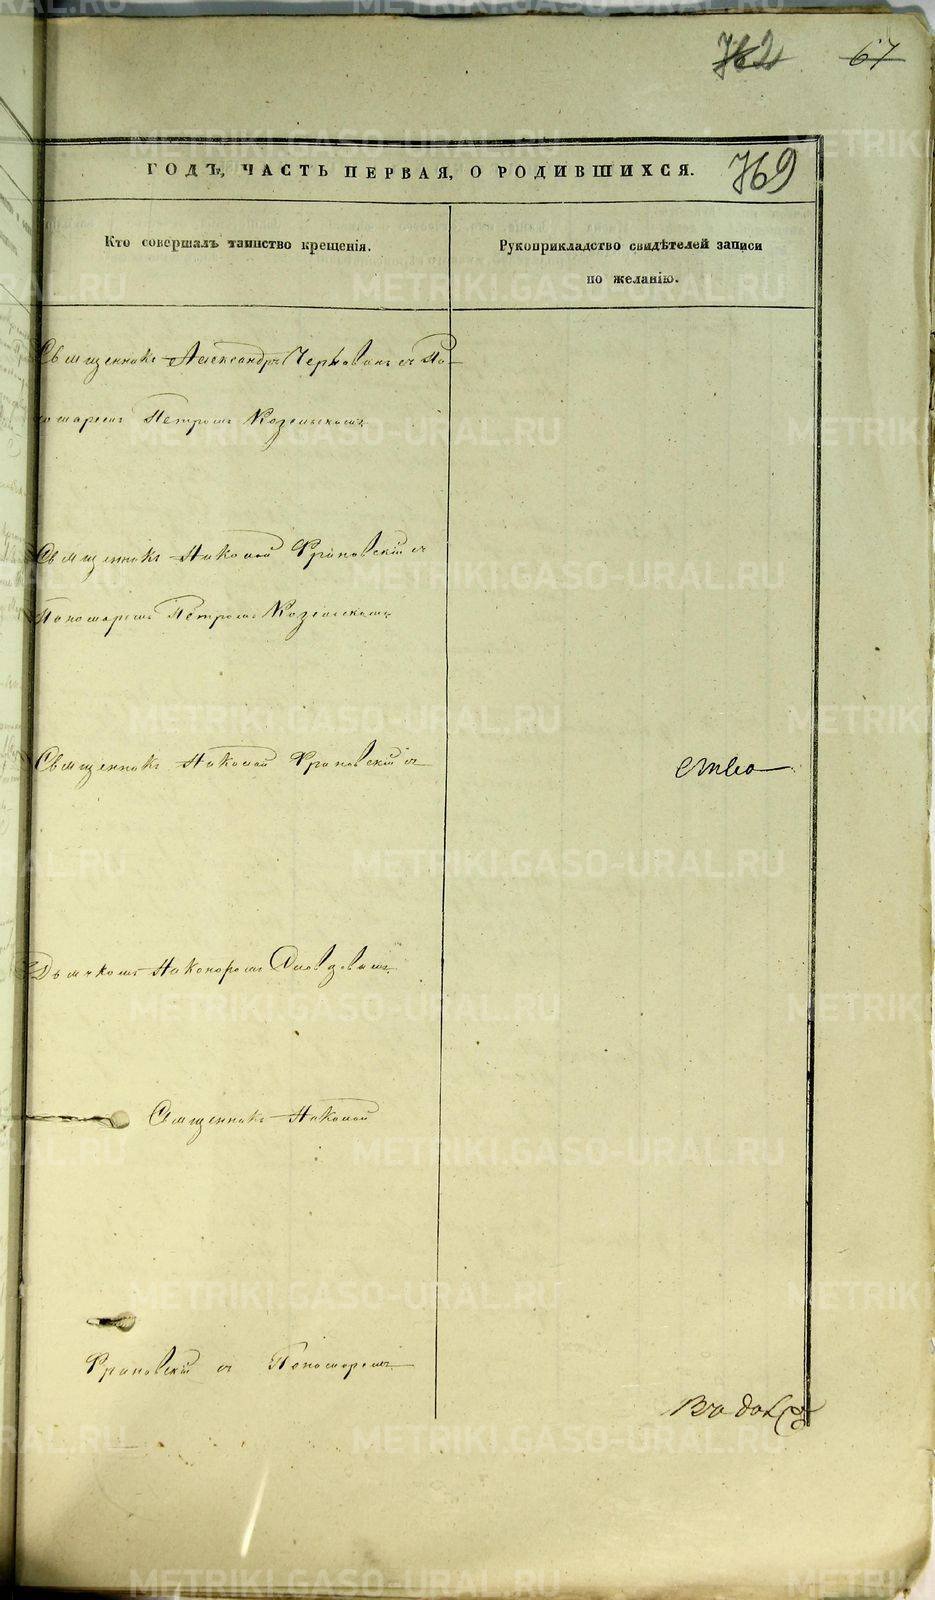 762 67
ГОДЪ, ЧАСТЬ ПЕРВАЯ, О РОДИВШИХСЯ. 769
Кто совершалъ таинство крещенія.
Рукоприкладство свидѣтелей записи
по желанію.
Священникъ Александръ съ По-
номаремъ Петромъ Козельскимъ
Священникъ Николай съ
Пономаремъ Петромъ Козельскимъ
Священникъ Николай съ
Дьячкомъ Никоноромъ
Священникъ Николай
съ Пономаремъ
METRIKI.GASO-URAL.RU